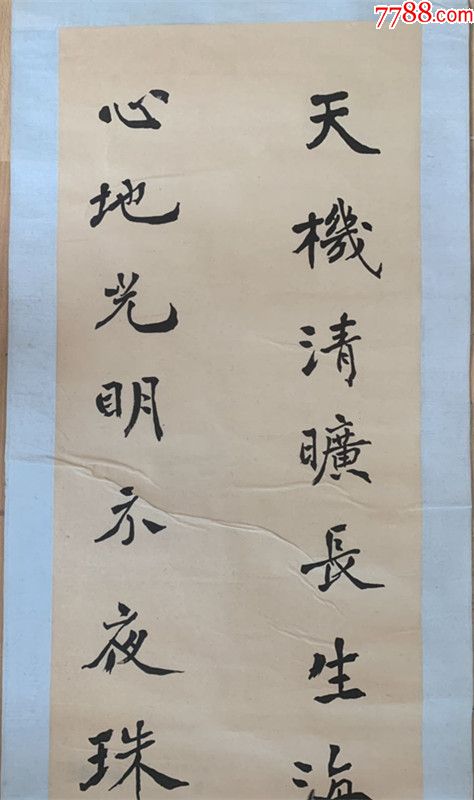 7788.com
天機清曠長生海
心地光明示夜珠